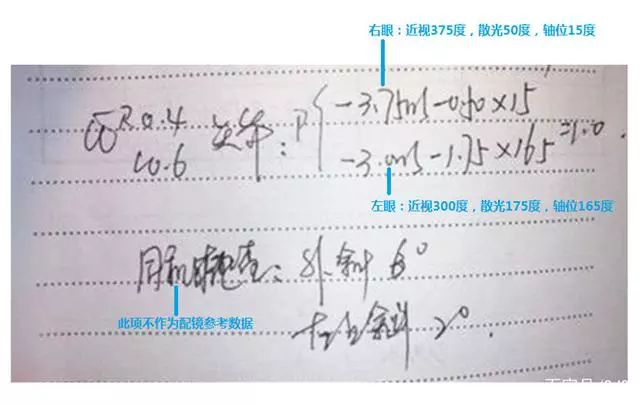 右眼：近视375度，散光50度，轴位15度
R0.4
-3.75DS-0.50×15
L0.6
-3.0DS-1.75×165
=1.0
左眼：近视300度，散光175度，轴位165度
同视机检查：外斜 6°
此项不作为配镜参考数据
左上斜 2°.